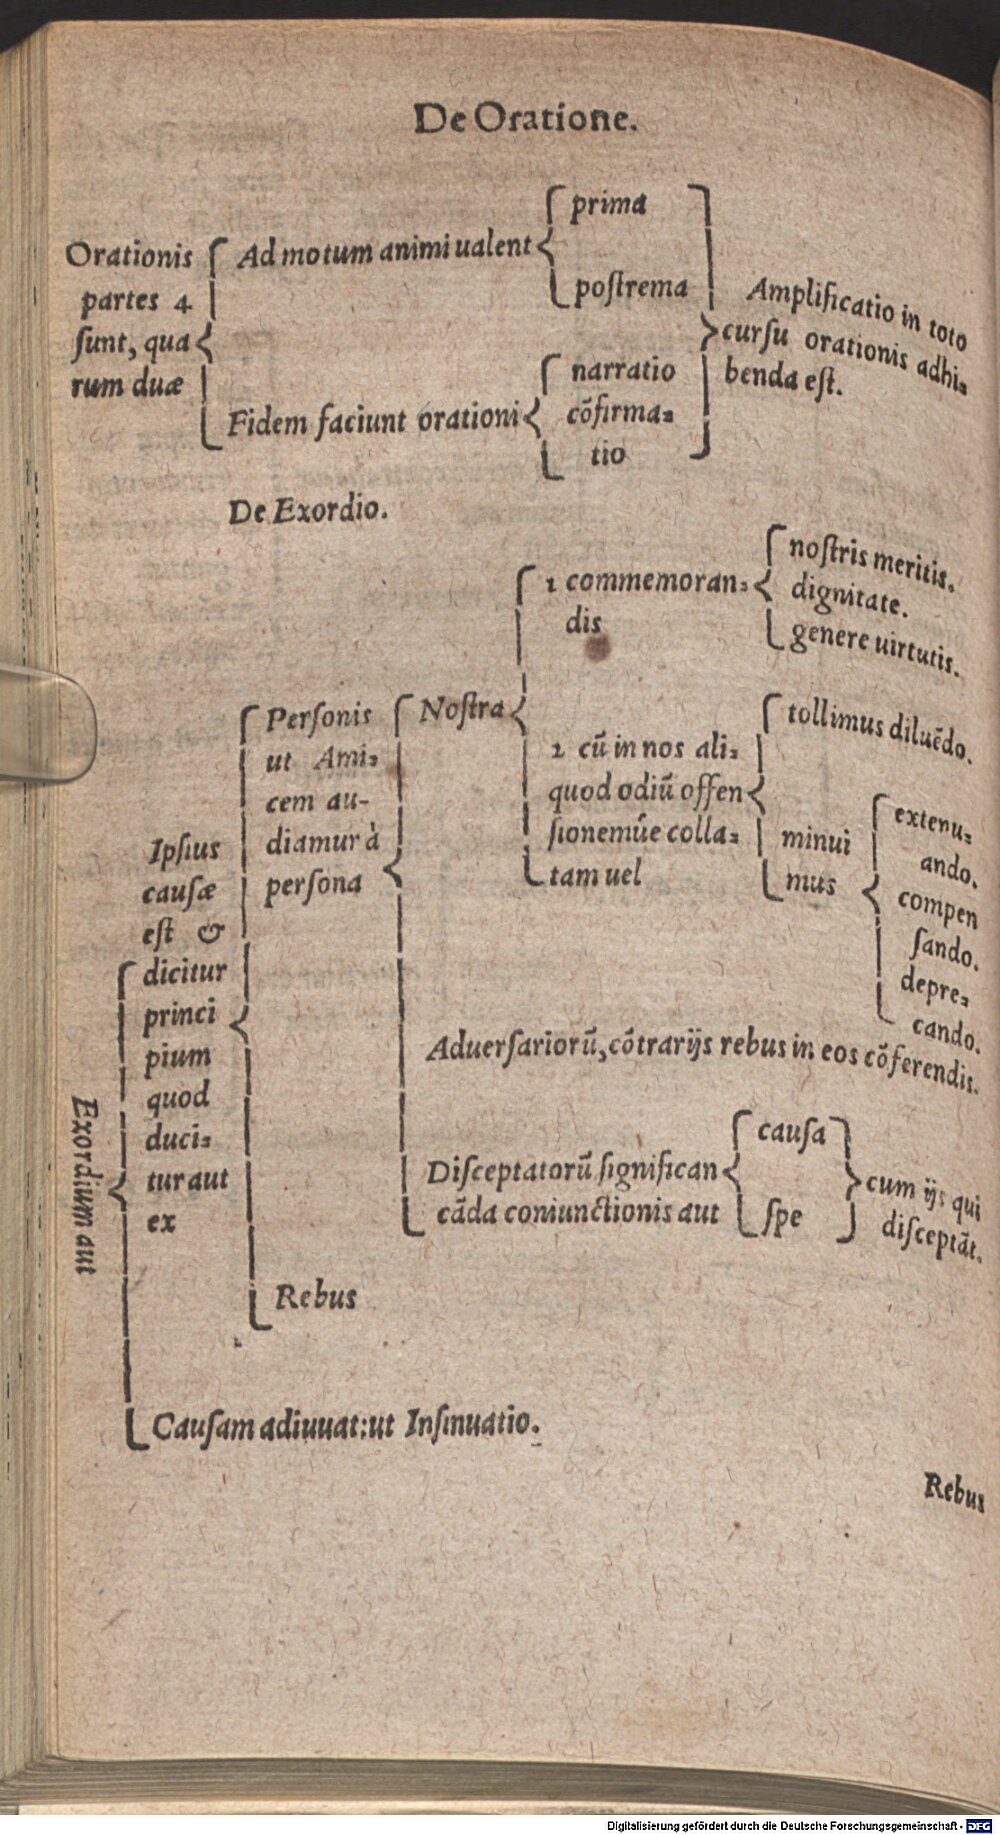 De Oratione.
Orationis
partes 4
ſunt, qua
rum duæ
Ad motum animi ualent
prima
poſtrema
Fidem faciunt orationi
narratio
cõfirma=
tio
Amplificatio in toto
curſu orationis adhi=
benda eſt.
De Exordio.
Exordium aut
Ipſius
cauſæ
eſt &
dicitur
princi
pium
quod
duci=
tur aut
ex
Perſonis
ut Ami=
cem au-
diamur à
perſona
Noſtra
1 commemoran=
dis
noſtris meritis.
dignitate.
genere uirtutis.
2 cũ in nos ali=
quod odiũ offen
ſionemúe colla=
tam uel
tollimus diluẽdo.
minui
mus
extenu=
ando.
compen
ſando.
depre=
cando.
Aduerſariorũ, cõtrarijs rebus in eos cõferendis.
Diſceptatorũ ſignifican
cãda coniunctionis aut
cauſa
ſpe
cum ijs qui
diſceptãt.
Rebus
Cauſam adiuuat: ut Inſinuatio.
Rebus
Digitalisierung gefördert durch die Deutsche Forschungsgemeinschaft - DFG